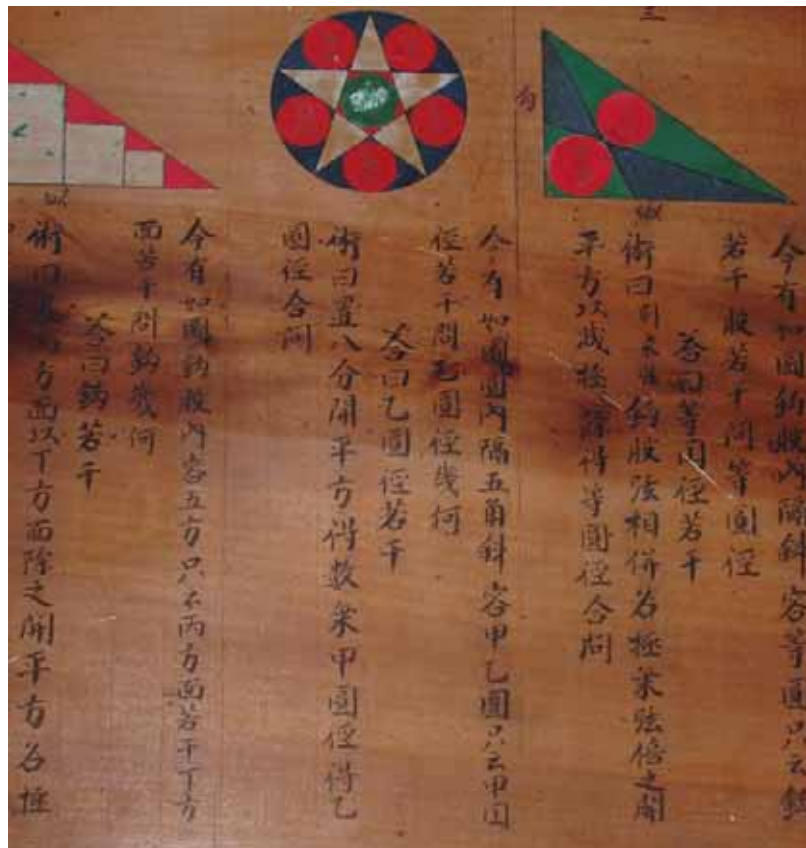 三
今有如圖鈎股内隔斜容等圓只云鈎
若干股若干問等圓径
答曰等圓径若干
術曰 鈎股弦相併名極乗弦倍之開
平方以减極 得等圓径合問
今有如圖圓内隔五角斜容甲乙圓只云甲圓
径若干問乙圓径幾何
答曰乙圓径若干
術曰置八分開平方得数乗甲圓径得乙
圓径合問
今有如圖鈎股内容五方只云丙方面若干丁方
面若干問鈎幾何
答曰鈎若干
術曰 方面以丁方面除之開平方名極